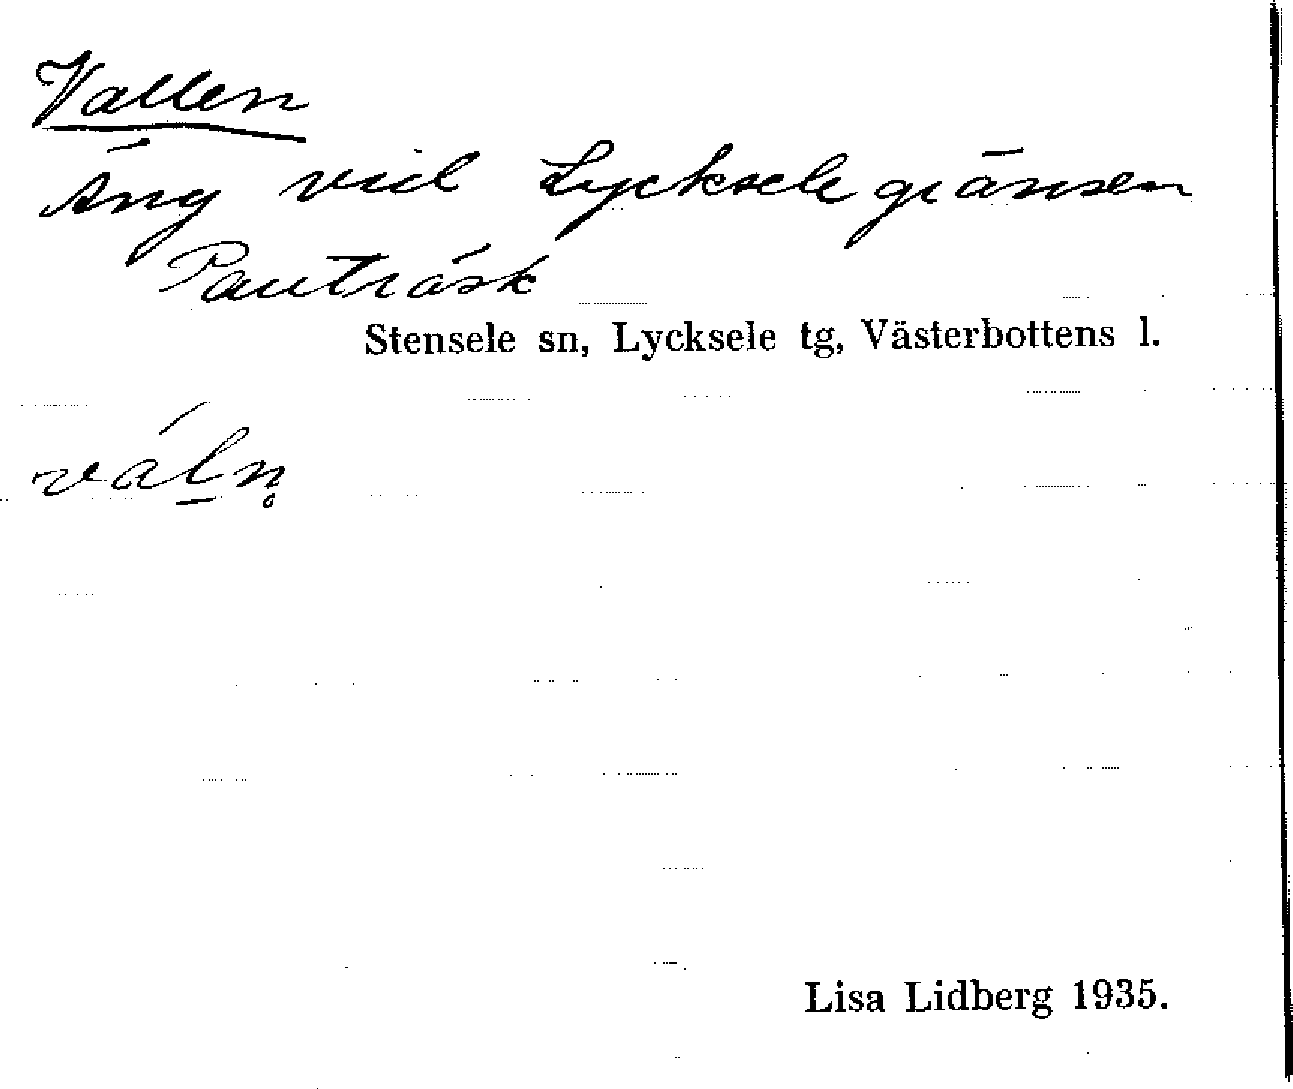 Vallen
Äng vid Lyckselegränsen
Pauträsk
Stensele sn, Lycksele tg, Västerbottens l.
vál̲n̥
Lisa Lidberg 1935.